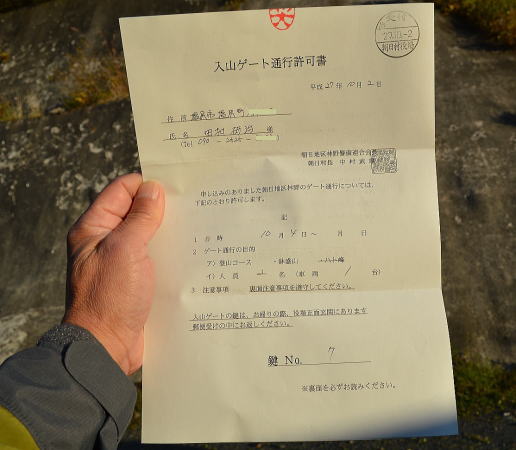 受付
27.10.-2
朝日村役場
入山ゲート通行許可書
平成27年10月2日
住所
氏名 田村 様
(Tel 090 -
朝日地区林野警備連合会
朝日村長 中村武雄
申し込みのありました朝日地区林野のゲート通行については、
下記のとおり許可します。
記
1 日時 10月4日～ 月 日
2 ゲート通行の目的
ア)登山コース ・鉢盛山 ・ハト峰
イ)人員 名(車両 1 台)
3 注意事項 裏面注意事項を遵守してください。
入山ゲートの鍵は、お帰りの際、役場正面玄関にあります
郵便受けの中にお返しください。
鍵 No. 7
※裏面を必ずお読みください。